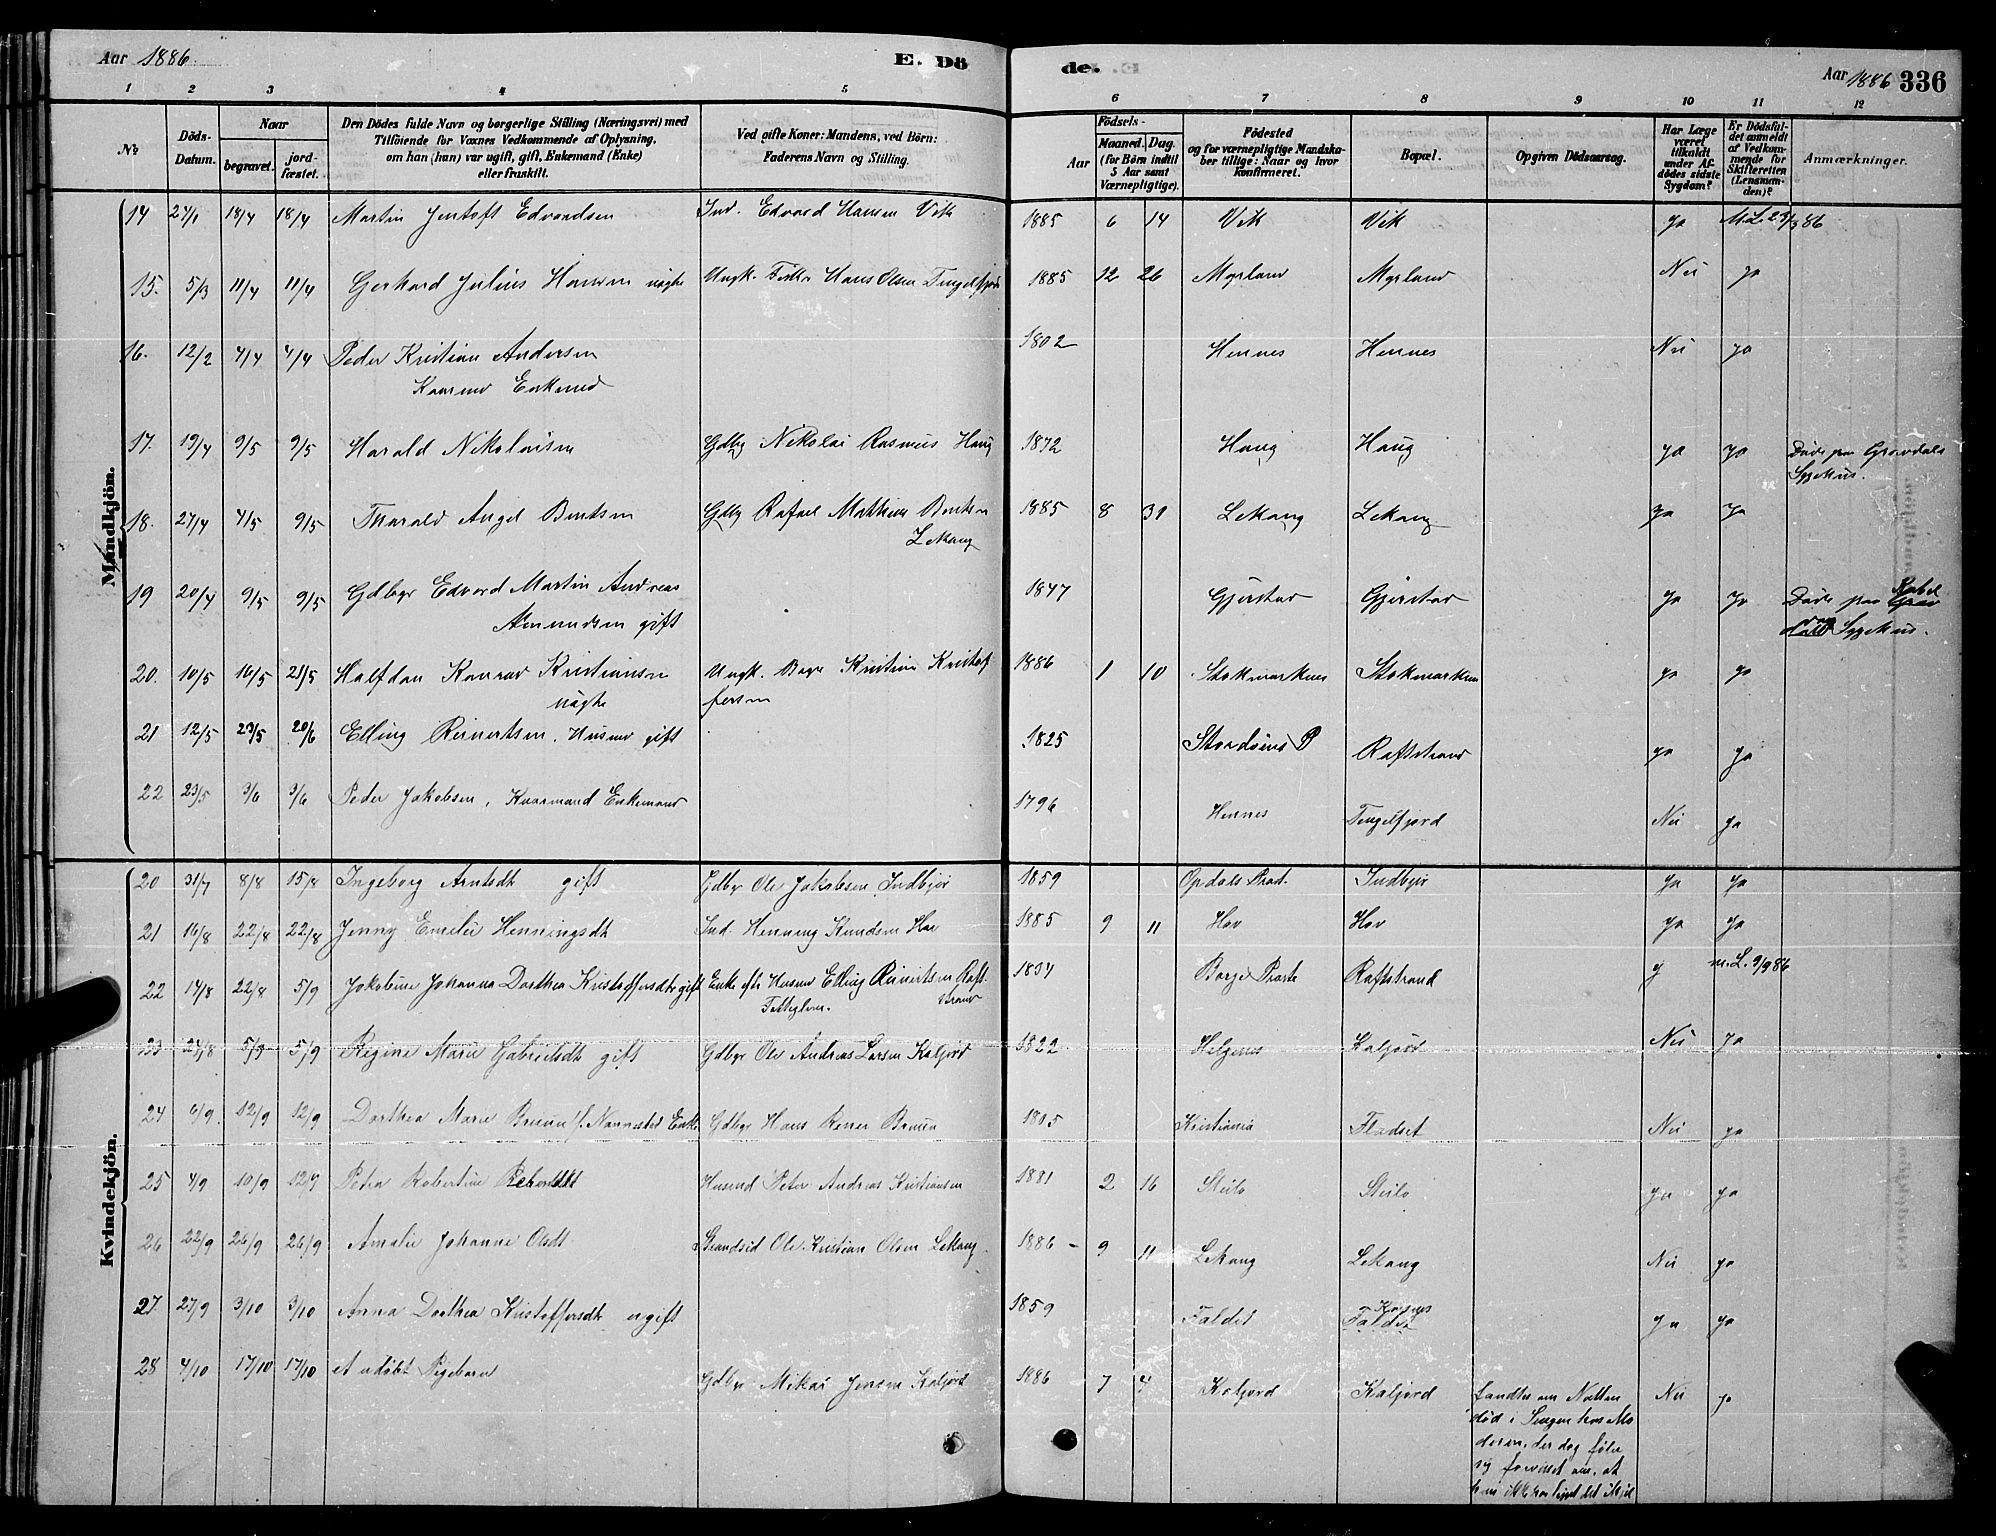 Aar 1886.
E. Dö
de.
Aar 1886 336
1 2 3 4 5 6 7 8 9 10 11 12
No.
Döds-Datum.
Naar
begravet.
jordfæstet.
Den Dödes fulde Navn og borgerlige Stilling (Næringsvei) med
Tilföiende for Voxnes Vedkommende af Oplysning,
om han (hun) var ugift, gift, Enkemand (Enke)
eller fraskilt.
Ved gifte Koner: Mandens, ved Börn:
Faderens Navn og Stilling.
Födsels-
Aar
Maaned. Dag.
(for Börn indtil
5 Aar samt
Værnepligtige).
Födested
og for værnepligtige Mandskaber tillige: Naar og hvor
konfirmeret.
Bopæl.
Opgiven Dödsaarsag.
Har Læge
været
tilkaldt
under Afdödes sidste
Sygdom?
Er Dödsfaldet anmeldt
af Vedkommende for
Skifteretten
(Lensmanden)?
Anmærkninger.
Mandkjön.
14 24/1 18/4 18/4 Martin Jentoft Edvardsen Ind. Edvard Hansen Vik 1885 6 14 Vik Vik Ja M.L. 29/3 86
15. 5/3 11/4 11/4 Gerhard Julius Hansen uægte Ungk. Hans Olsen Tengelfjord 1885 12 26 Myrland Myrland Nei ja
16. 12/2 4/4 4/4 Peder Kristian Andersen 1802 Hennes Hennes Nei ja
Kaarmd Enkemd
17. 19/4 9/5 9/5 Harald Nikolaisen Gdbg Nikolai Rasmus Haug 1872 Haug Haug ja ja Døde paa Gravdals
Sygehus.
18. 27/4 4/5 9/5 Tharald Angel Bentsen Gdbg Rafael Mathias Bentsen 1885 8 31 Lekang Lekang ja ja
Lekang
19 20/4 9/5 9/5 Gdbgr Edvard Martin Andreas 1847 Gjerstad Gjerstad ja ja Døde paa Kabel
Amundsen gift vaag Sygehus.
20. 10/5 16/5 23/5 Halfdan Konrad Kristiansen Ungk. Kristian Kristof 1886 1 10 Stokmarknes Stokmarknes ja ja
uægte fersen
21 12/5 23/5 20/6 Elling Reinertsen. Husmd gift 1825 Raftstrand ja ja
22 23/5 3/6 3/6 Peder Jakobsen, Kaarmand Enkemand 1796 Hennes Tengelfjord Nei ja
Kvindekjön.
20 31/7 8/8 15/8 Ingeborg Arntsdt gift Gdbgr Ole Jakobsen Indbyør 1859 Opdals Præst. Indbyør ja ja
21 16/8 22/8 22/8 Jenny Emelie Henningsdt Ind. Henning Knudsen Hov 1885 9 11 Hov Hov ja ja
22 14/8 22/8 5/9 Jakobine Johanna Dorthea Kristoffersdt gift Enke efter Husmd Elling Reinertsen Raft 1834 Borge Præste Raftstrand j m.L. 9/9 86
Fattiglem. strand
23 24/8 5/9 5/9 Regine Marie Gabrielsdt gift Gdbgr Ole Andreas Larsen Kaljord 1822 Helgenes Kaljord Nei ja
24 6/9 12/9 12/9 Dorthea Marie Bruun f. Nannestad Enke Gdbgr Hans Bruun 1805 Kristiania Fladset Nei ja
25 4/9 10/9 12/9 Petra Robertine Husmd Peter Andreas Kristiansen 1881 2 16 Steilo Steilo ja ja
26 22/9 26/9 26/9 Amalie Johanne Olsdt Strandsid Ole Kristian Olsen Lekang 1886 9 11 Lekang Lekang Nei ja
27. 27/9 3/10 3/10 Anna Dorthea Kristoffersdt ugift 1859 Faldet Korsnes ja ja
Faldet
28 4/10 17/10 17/10 et udøbt Pigebarn Gdbgr Mikal Jensen Kaljord 1886 7 4 Kaljord Kaljord Fandtes om Natten Nei ja
død i Sengen hos Mo
deren, der dog føler
sig forvisset om, at
hun ikke har ligget det ihjel